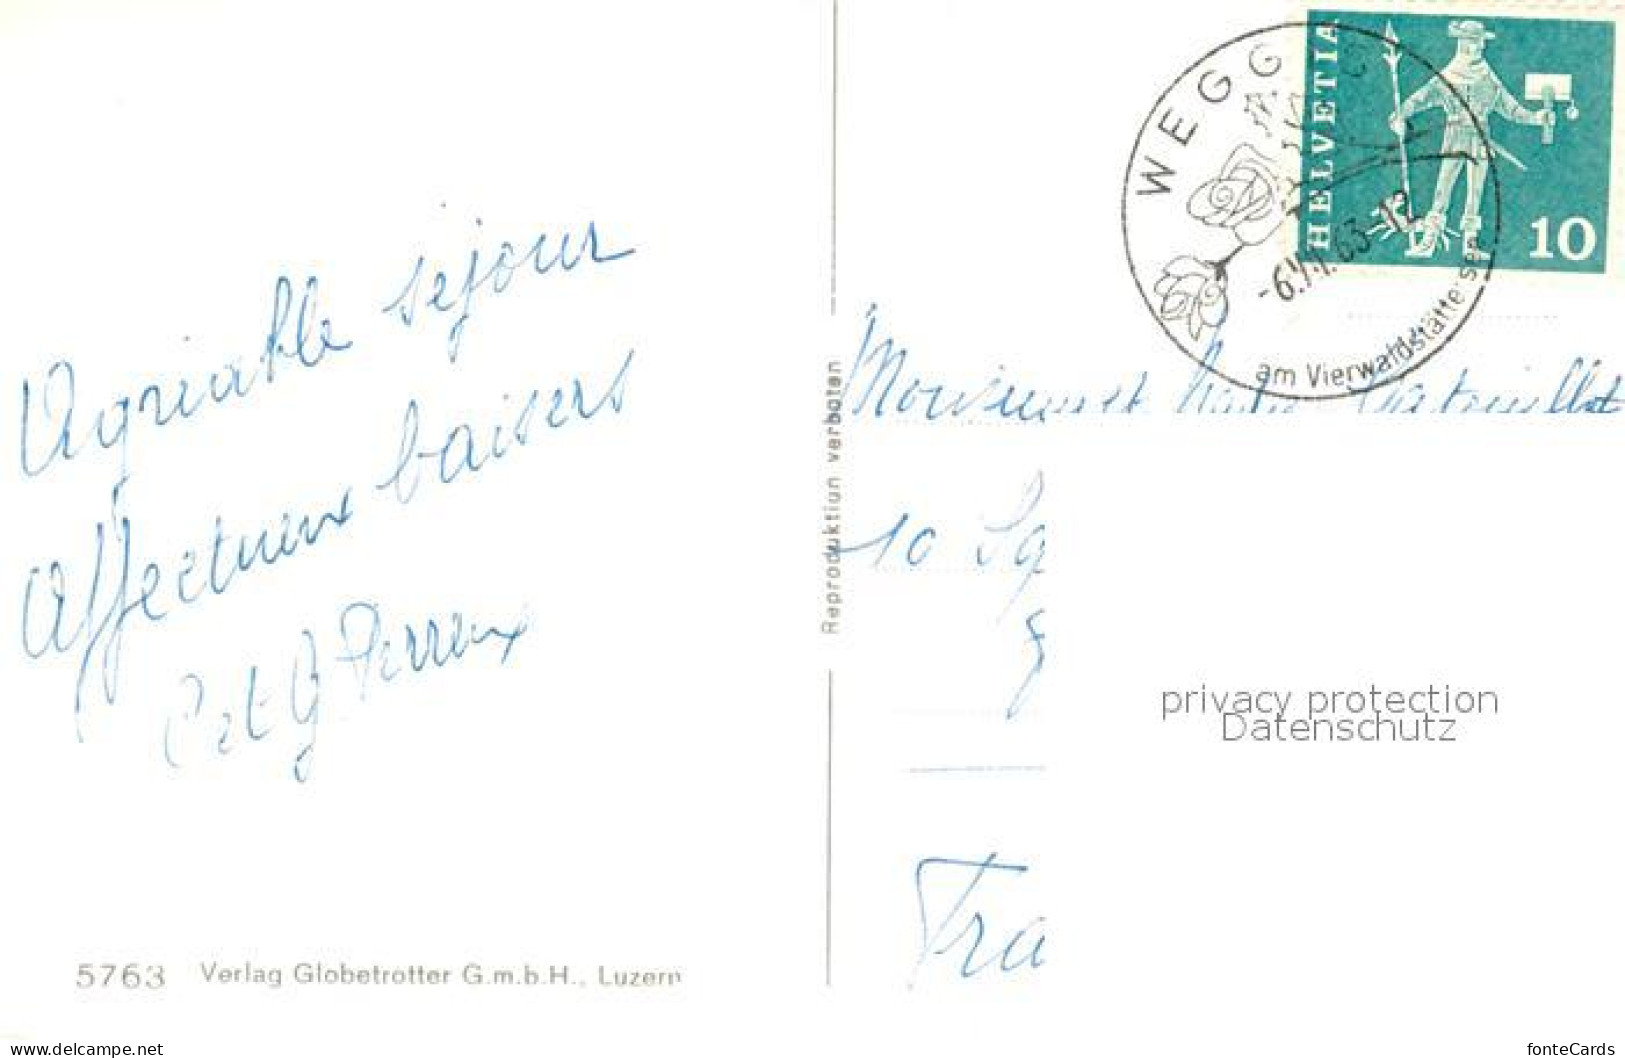 Agréable séjour
Affectueux baisers
P et G Perreux
5763 Verlag Globetrotter G.m.b.H., Luzern
Reproduktion verboten
WEGG
-6.VII.63-12
am Vierwaldstättersee
HELVETIA
10
Monsieur et
10 Sq
Fra
privacy protection
Datenschutz
www.delcampe.net
fonteCards